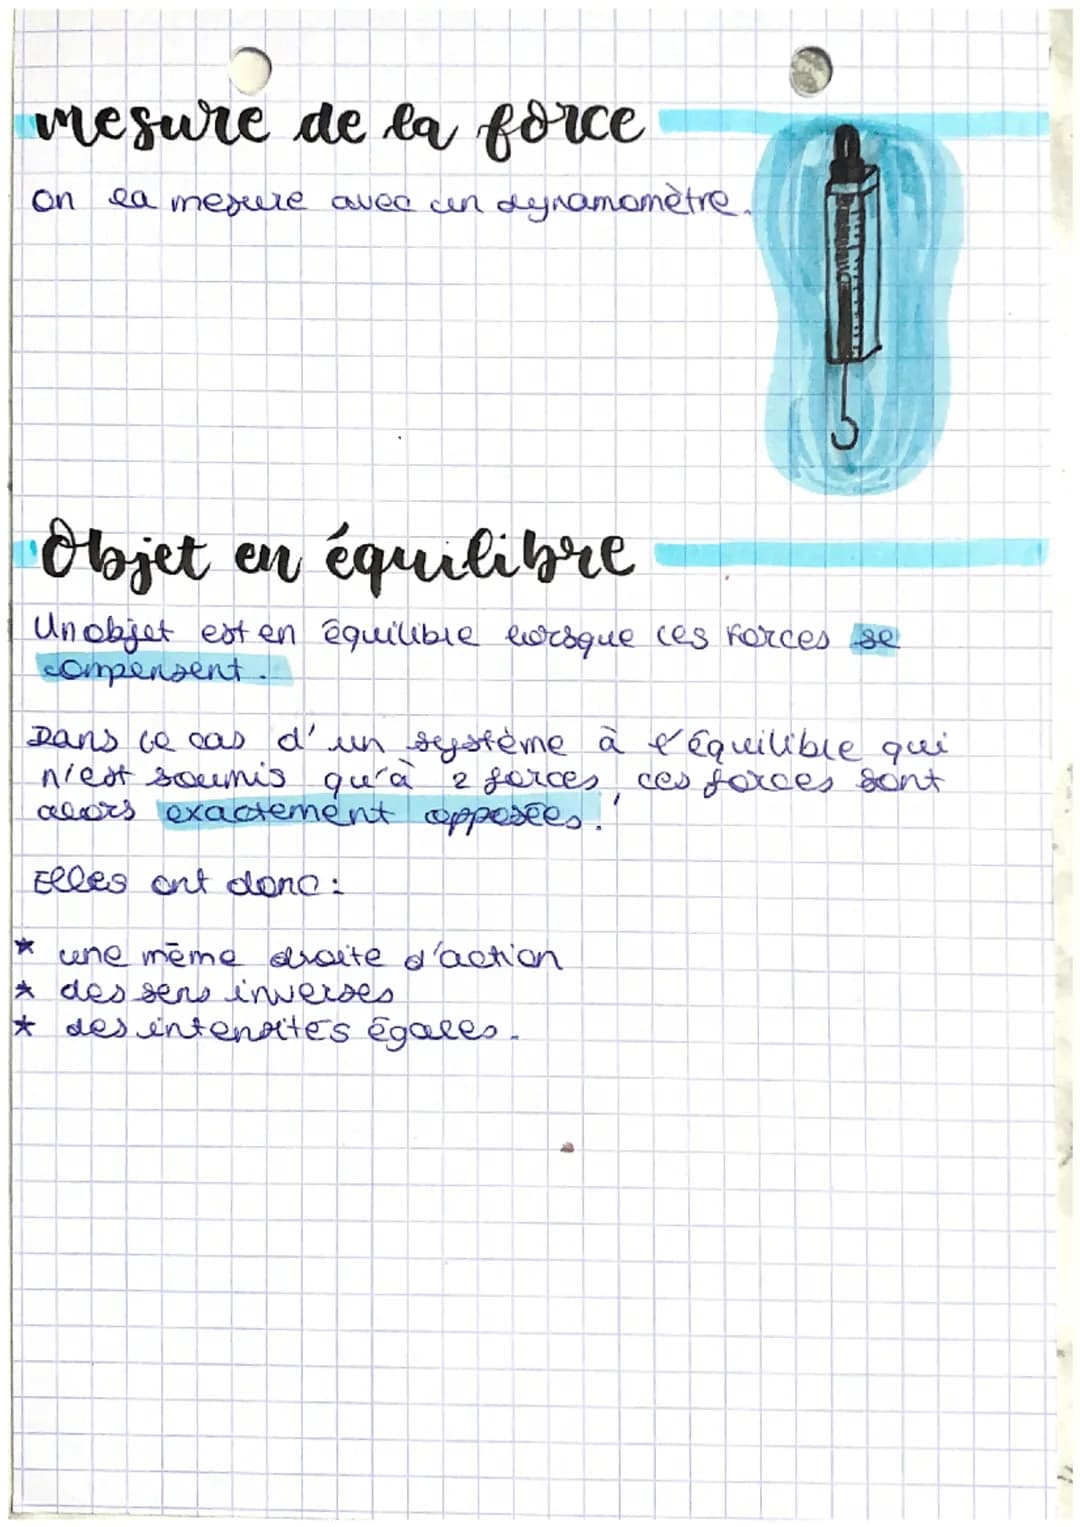 mesure de la force
on la mesure avec un dynamomètre.
Objet en équilibre
Un objet est en équilibre lorsque ces forces se
compensent.
Dans ce cas d'un système à l'équilibre qui
n'est soumis qu'à 2 forces, ces forces sont
alors exactement opposées.
Elles ont donc :
* une même droite d'action
* des sens inverses
* des intensités égales.